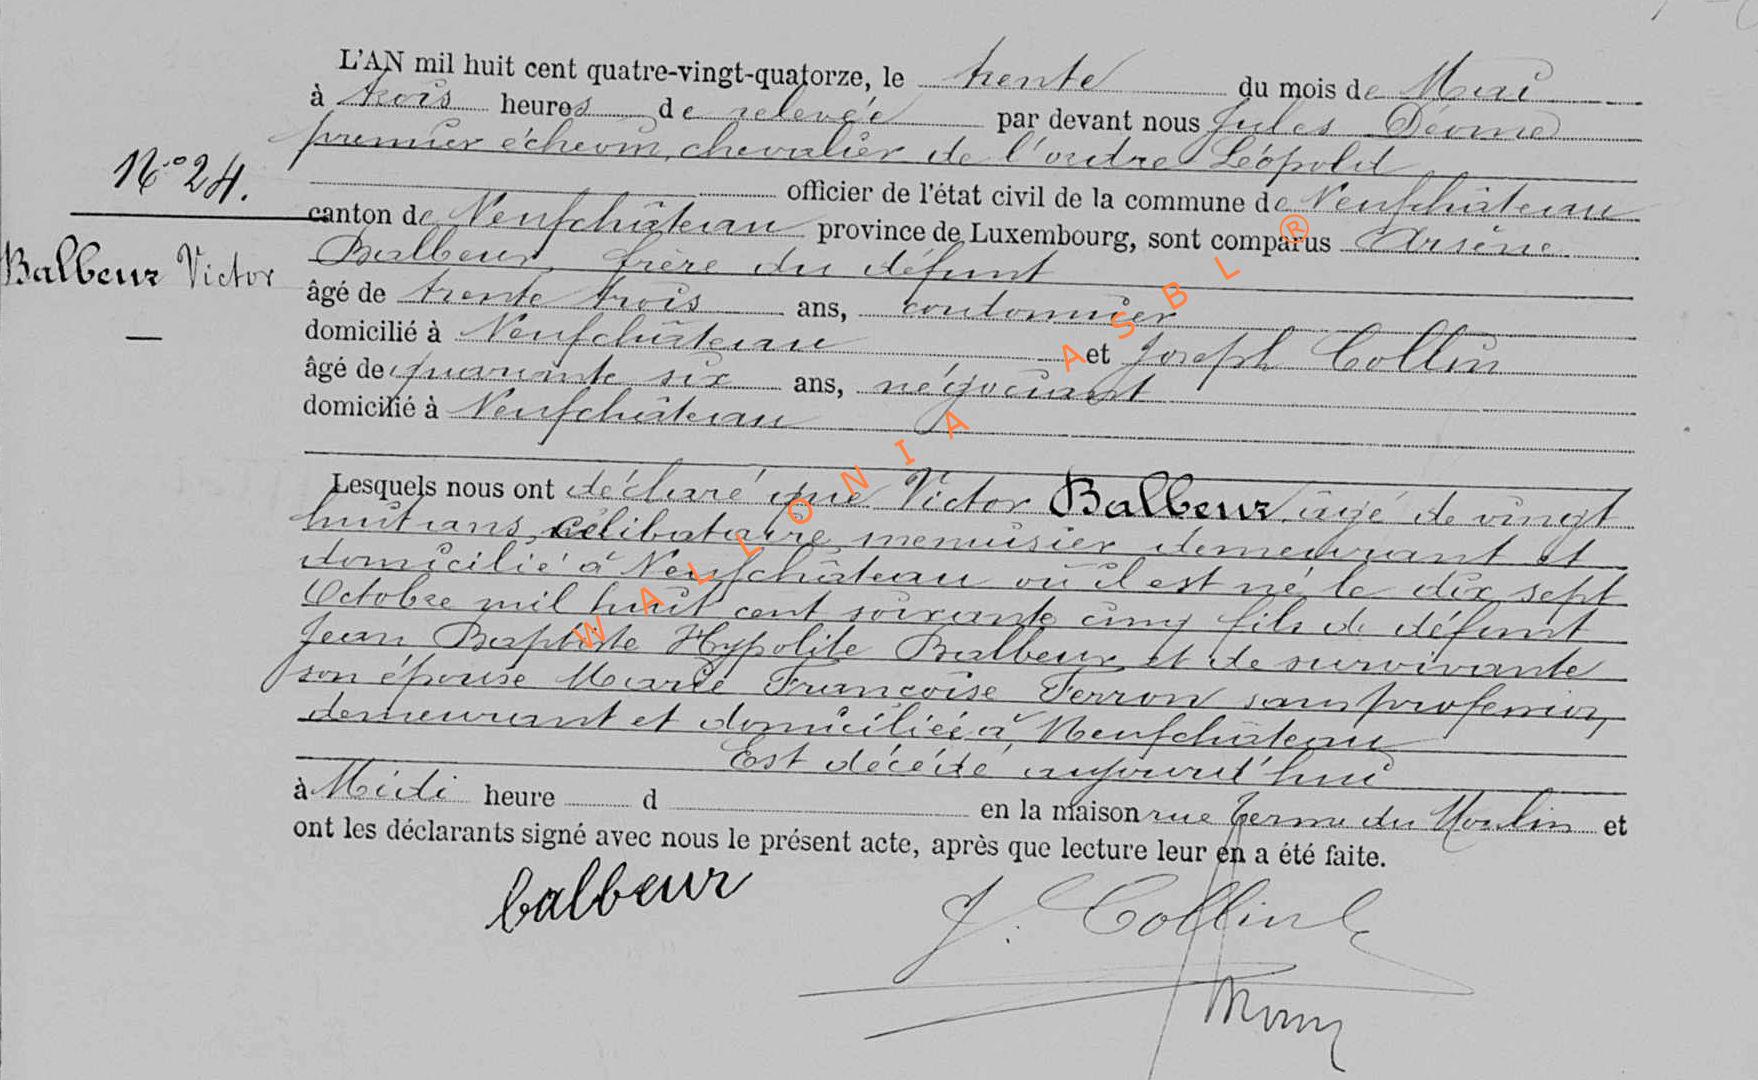 L'AN mil huit cent quatre-vingt-quatorze, le trente du mois de Mai
à trois heures de relevée par devant nous Jules
premier échevin, chevalier de l'ordre Léopold
N° 24.
officier de l'état civil de la commune de Neufchâteau
canton de Neufchâteau province de Luxembourg, sont comparus Arsène
Balbeur Victor
Balbeur, frère du défunt
âgé de trente trois ans, cordonnier
domicilié à Neufchâteau et Joseph Collin
âgé de quarante six ans, négociant
domicilié à Neufchâteau
Lesquels nous ont déclaré que Victor Balbeur, âgé de vingt
huit ans, célibataire menuisier demeurant et
domicilié à Neufchâteau où il est né le dix sept
Octobre mil huit cent soixante cinq fils de défunt
Jean Baptiste Hypolite Balbeur, et de survivante
son épouse Marie Françoise Ferron sans profession,
demeurant et domiciliée à Neufchâteau
Est décédé aujourd'hui
à Midi heure d en la maison rue Terme du Moulin et
ont les déclarants signé avec nous le présent acte, après que lecture leur en a été faite.
balbeur
J. Collin
WALLONIA ASBL ®